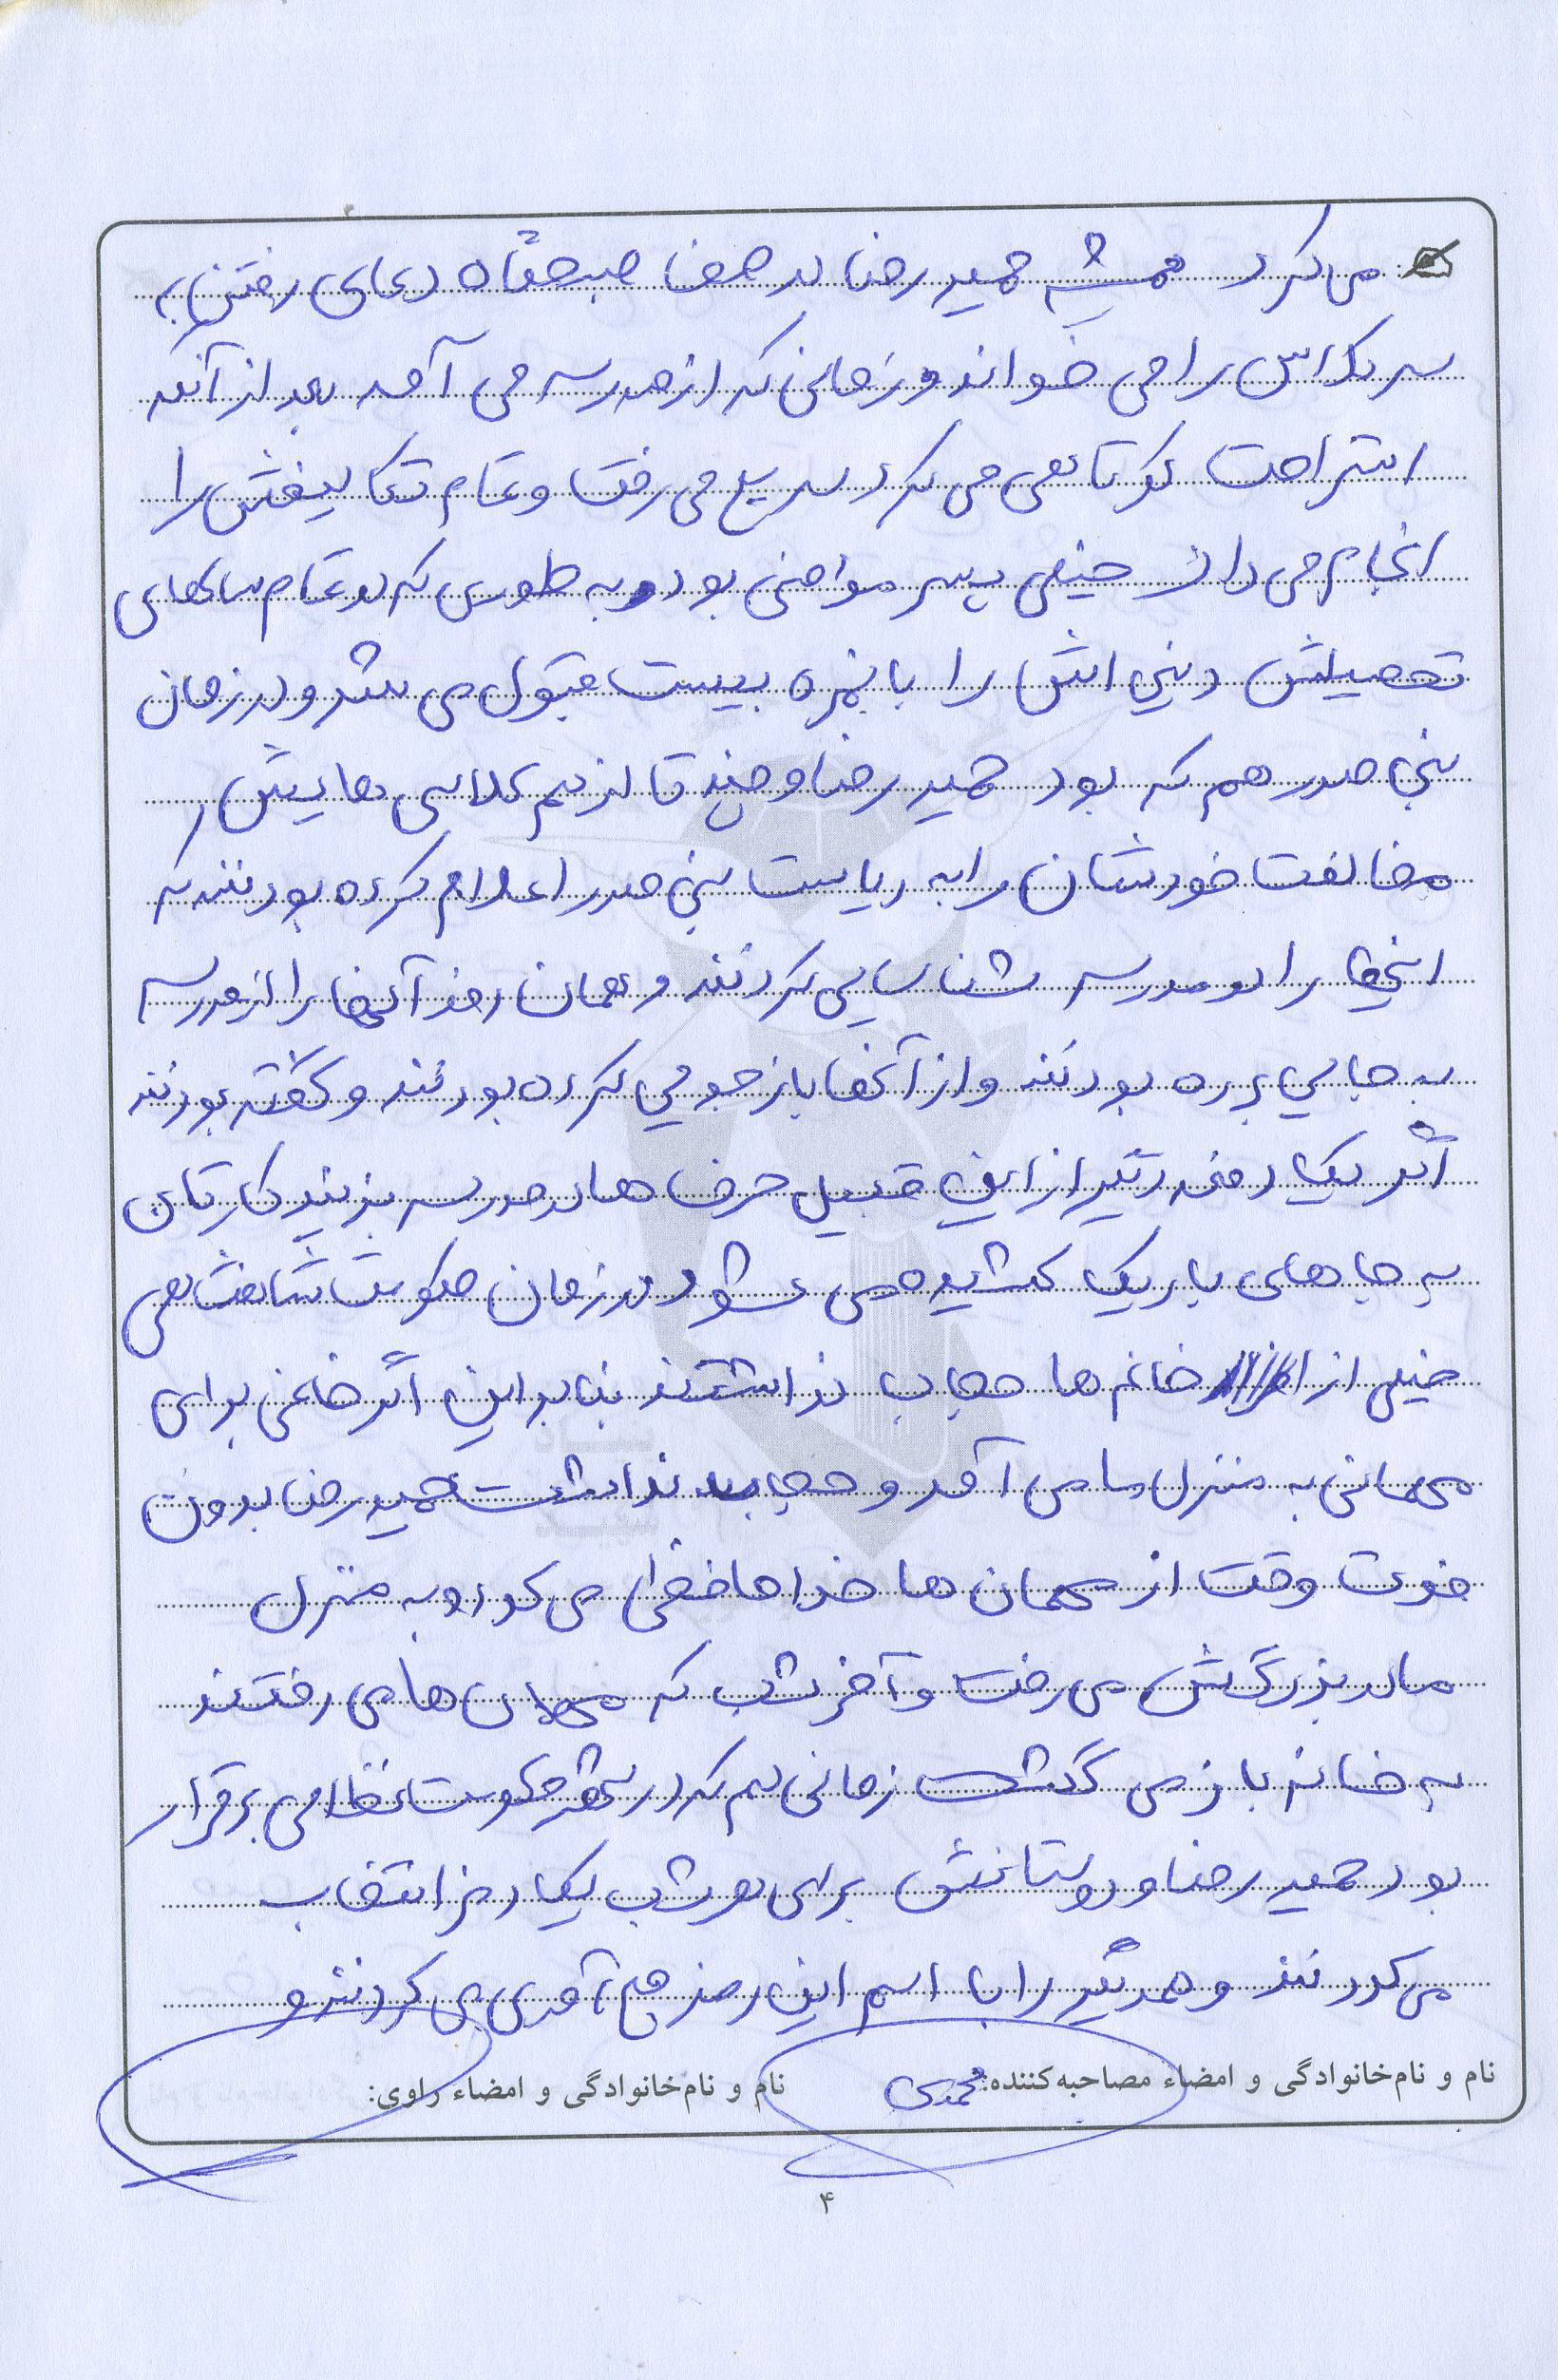 می کرد همیشه حمید رضا در صف صبحگاه دعای رفتن به
سر کلاس را می خواند و زمانی که از مدرسه می آمد بعد از آنکه
استراحت کوتاهی می کرد سریع می رفت و تمام تکالیفش را
انجام می داد خیلی پسر مؤمنی بود و به طوری که در تمام سالهای
تحصیلش دینی اش را با نمره بیست قبول می شد و در زمان
بنی صدر هم که بود حمید رضا و چند تا از هم کلاسی هایش
مخالفت خودشان را به ریاست بنی صدر اعلام کرده بودند که
اینها را در مدرسه شناسایی کردند و همان روز آنها را از مدرسه
به جایی برده بودند و از آنها بازجویی کرده بودند و گفته بودند
اگر یک دفعه دیگر از این قبیل حرف ها در مدرسه بزنید کارتان
به جاهای باریک کشیده می شود در زمان حکومت شاهنشاهی
خیلی از خانم ها حجاب نداشتند بنابراین اگر خانمی برای
مهمانی به منزل ما می آمد و حجاب نداشت حمید رضا بدون
فوت وقت از مهمان ها خداحافظی می کرد و به منزل
مادر بزرگش می رفت و آخر شب که مهمان ها می رفتند
به خانه باز می گشت زمانی هم که در شهر حکومت نظامی برقرار
بود حمید رضا و دوستانش برای هر شب یک رمز انتخاب
می کردند و همدیگر را با اسم این رمز جمع آوری می کردند و
نام و نام خانوادگی و امضاء مصاحبه کننده: محمدی
نام و نام خانوادگی و امضاء راوی:
۴